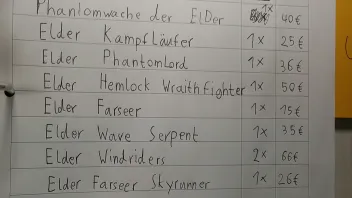 Phantomwache der Elder 1x 40€
Elder Kampfläufer 1x 25€
Elder Phantomlord 1x 36€
Elder Hemlock Wraithfighter 1x 50€
Elder Farseer 1x 15€
Elder Wave Serpent 1x 35€
Elder Windriders 2x 66€
Elder Farseer Skyrunner 1x 26€